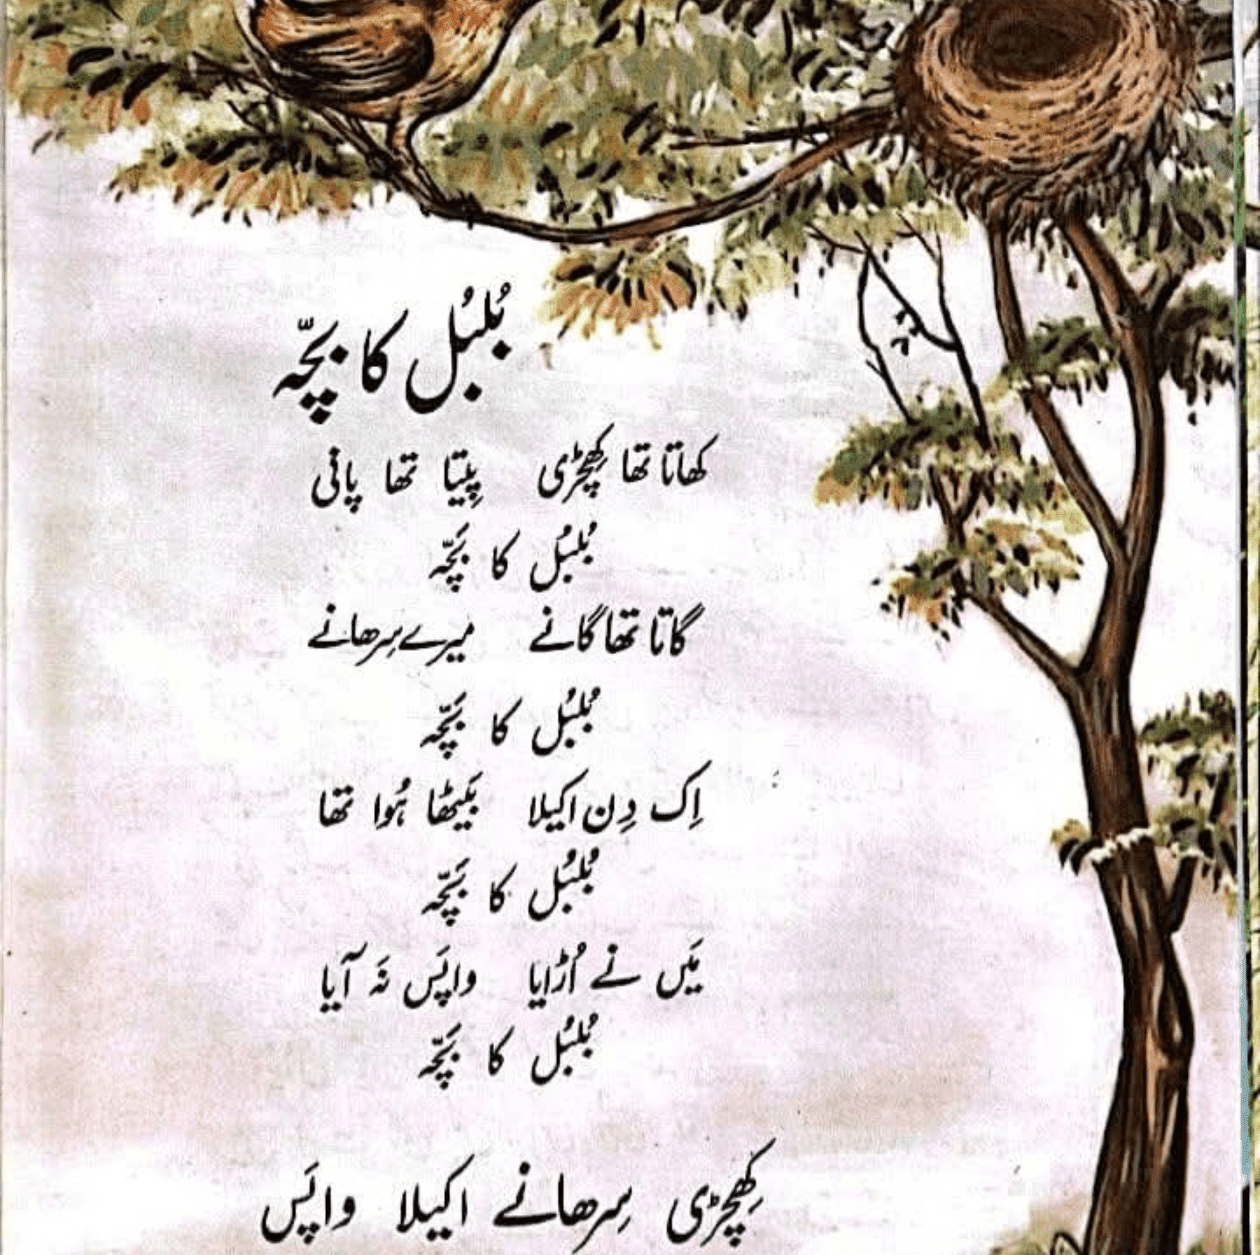 بُلبُل کا بچّہ
کھاتا تھا کِھچڑی پِیتا تھا پانی
بُلبُل کا بَچّہ
گاتا تھا گانے میرے سِرھانے
بُلبُل کا بَچّہ
اِک دِن اکیلا بَیٹھا ہُوا تھا
بُلبُل کا بَچّہ
مَیں نے اُڑایا واپَس نَہ آیا
بُلبُل کا بَچّہ
کِھچڑی سِرھانے اکیلا واپَس